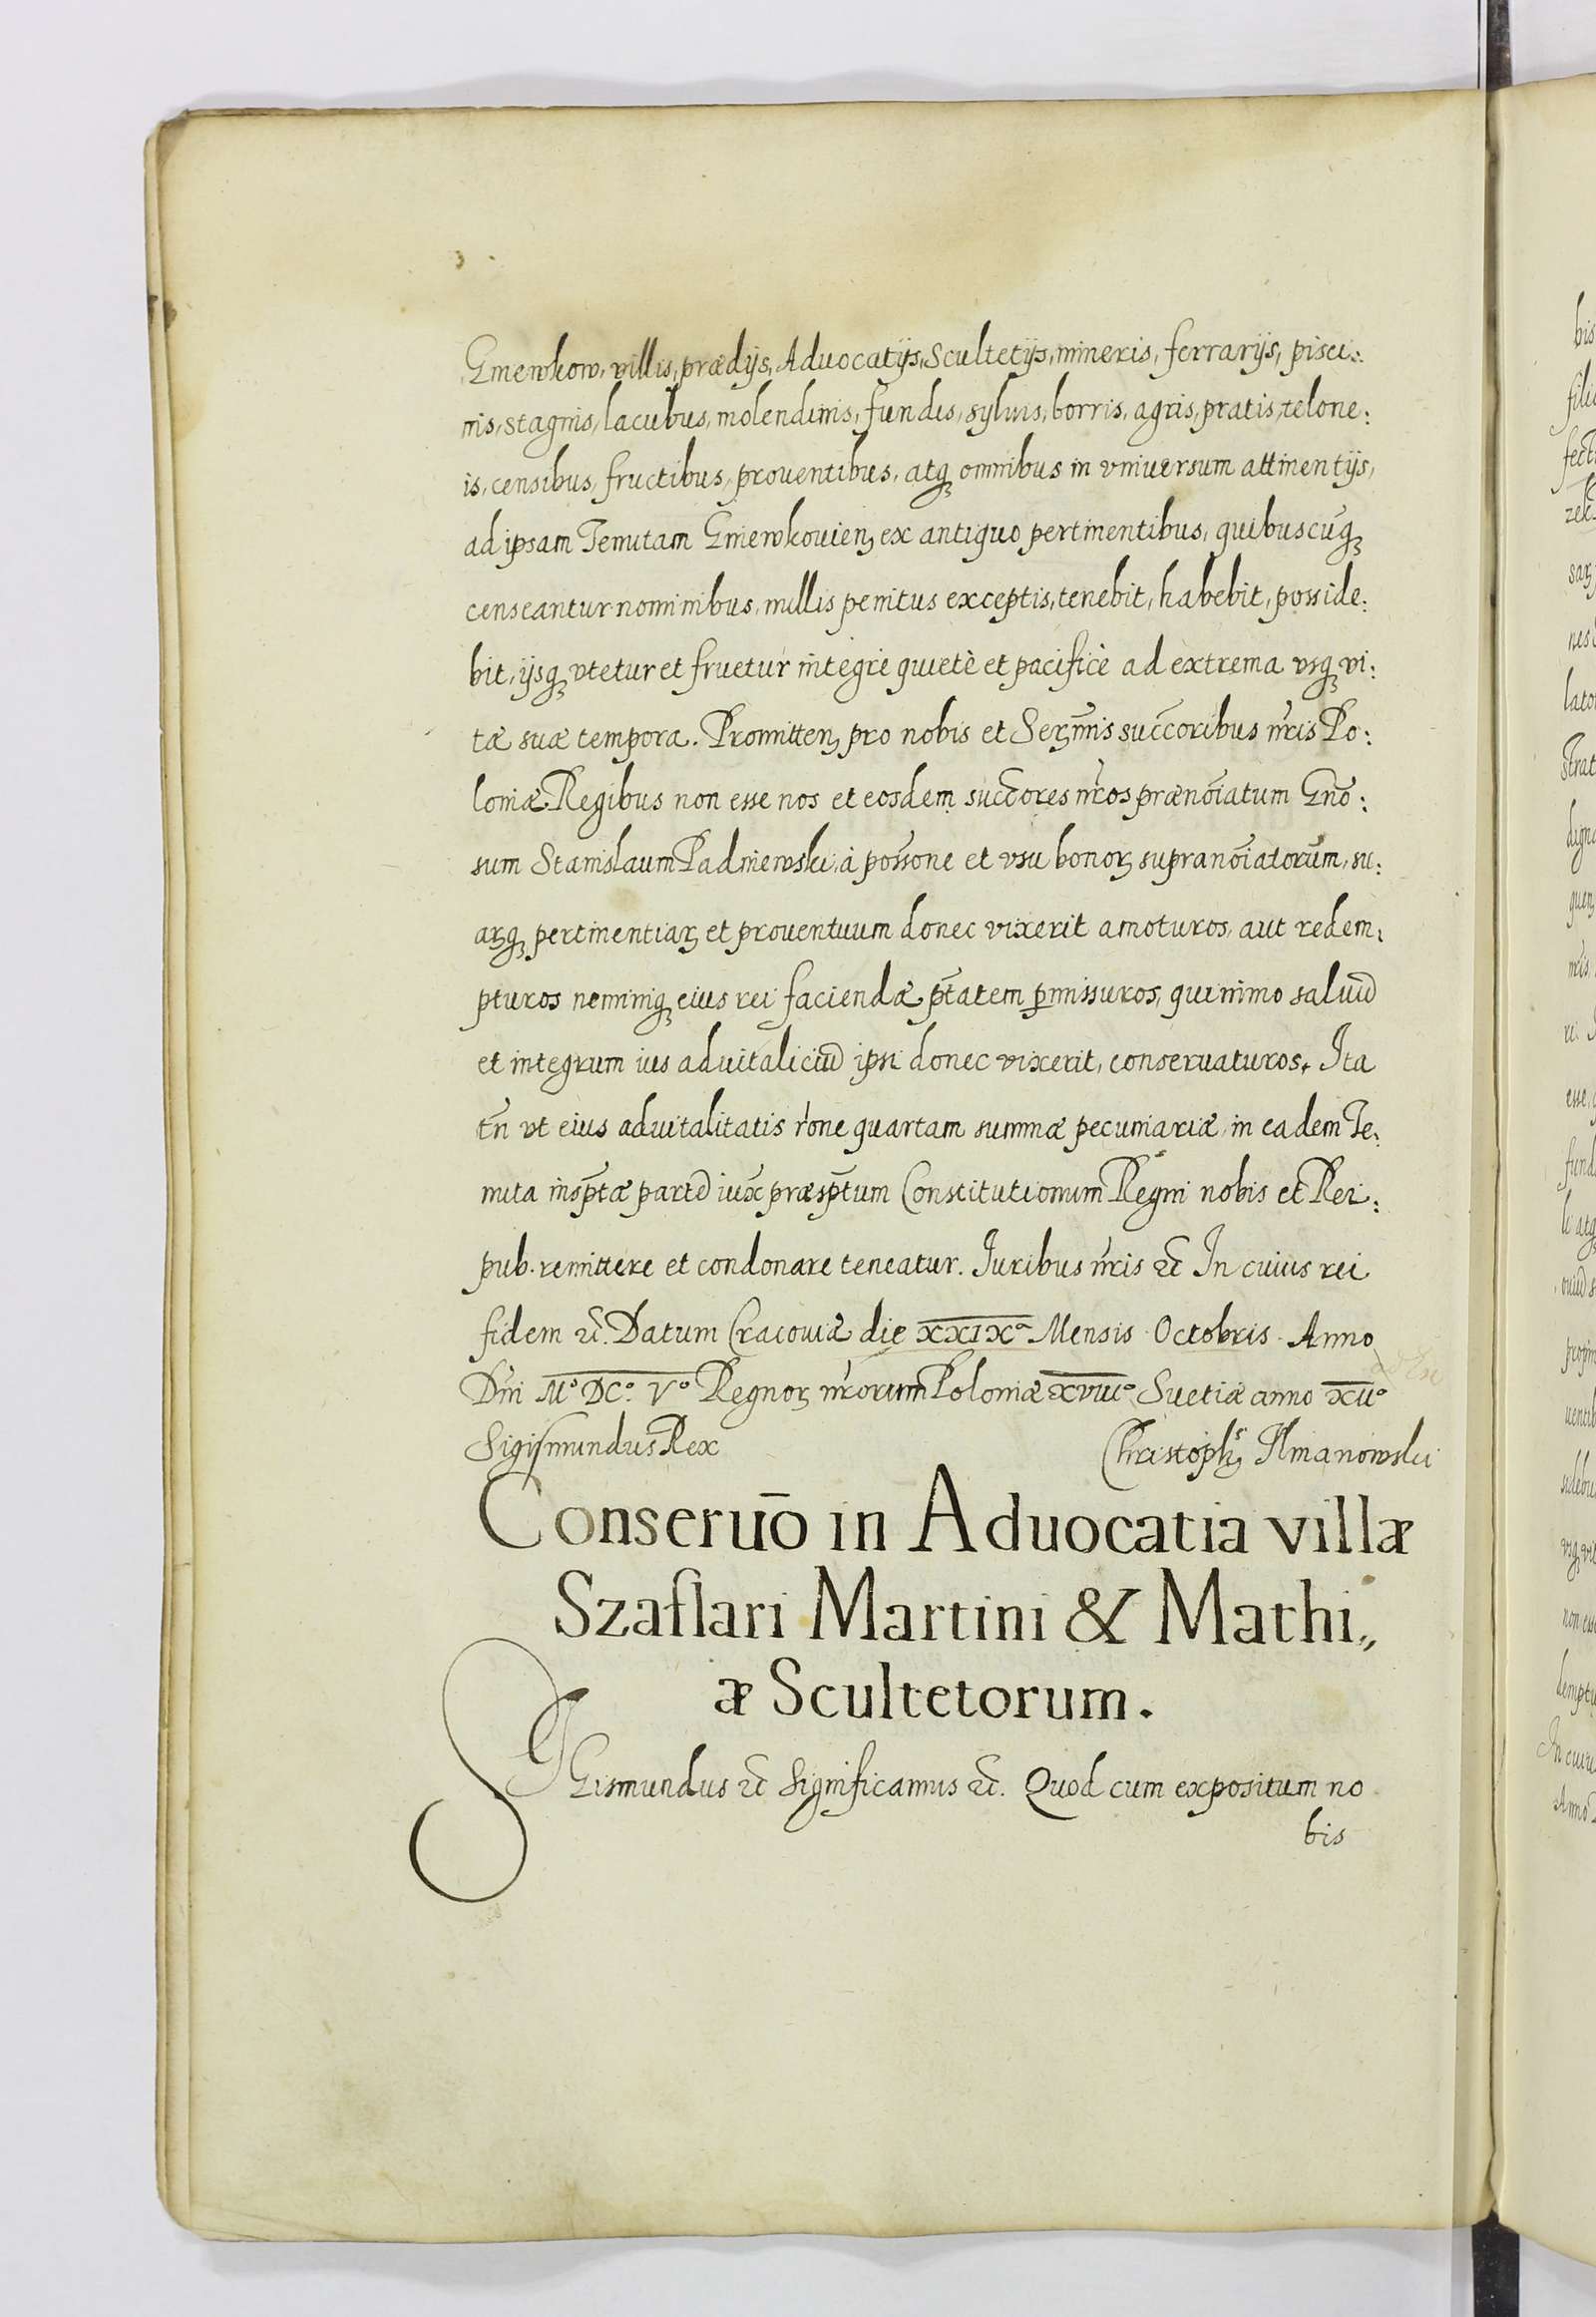 Gmewkow, villis, prædijs, Aduocatijs, Scultetijs, mineris, ferrarijs, pisci:
nis, stagnis, lacubus, molendinis, fundis, syluis, borris, agris, pratis, telone:
is, censibus, fructibus, prouentibus, atqꝫ omnibus in vniuersum attinentijs,
ad ipsam Tenutam Gmewkouienꝫ ex antiquo pertinentibus, quibuscūqꝫ
censeantur nominibus, nullis penitus exceptis, tenebit, habebit, posside:
bit, ijsqꝫ vtetur et fruetur integrè quietè et pacificè ad extrema vsqꝫ vi:
tæ suæ tempora. Promittenꝫ pro nobis et Serꝫm̄is succ̄oribus n̄ris Po:
loniæ Regibus non esse nos et eosdem succ̄ores n̄ros prænōiatum Gn̄o:
sum Stanislaum Padniewski, à poss̄one et vsu bonorꝫ supranōiatorum, su:
arꝫqꝫ pertinentiarꝫ et prouentuum donec vixerit amoturos, aut redem:
pturos neminiqꝫ eius rei faciendæ p̄tatem ꝑmissuros, quinimo saluū
et integrum ius aduitaliciū ipsi donec vixerit, conseruaturos. Ita
tn̄ vt eius aduitalitatis r̄one quartam summæ pecuniariæ in eadem Te:
nuta insp̄tæ partē iux̄ præsp̄tum Constitutionum Regni nobis et Rei:
pub. remittere et condonare teneatur. Iuribus n̄ris &c̄ In cuius rei
fidem &c̄. Datum Cracouiæ die XXIXº Mensis Octobris Anno
Dn̄i Mº DCº. Vº Regnorꝫ n̄rorum Poloniæ XVIIIº Suetiæ anno XIIº
Sigismundus Rex Christophꝫ Ilmanowski
Conseruō in Aduocatia villæ
Szaflari Martini & Mathi„
æ Scultetorum.
SIGismundus &c̄ Significamus &c̄. Quod cum expositum no
bis